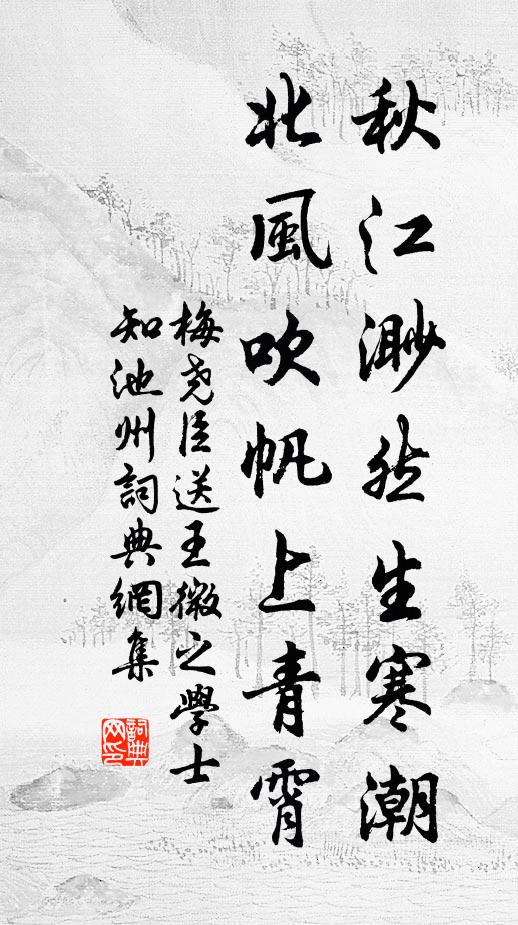 秋江渺然生寒潮
北風吹帆上青霄
梅尧臣送王微之學士
知池州詞典網集
詞典网印